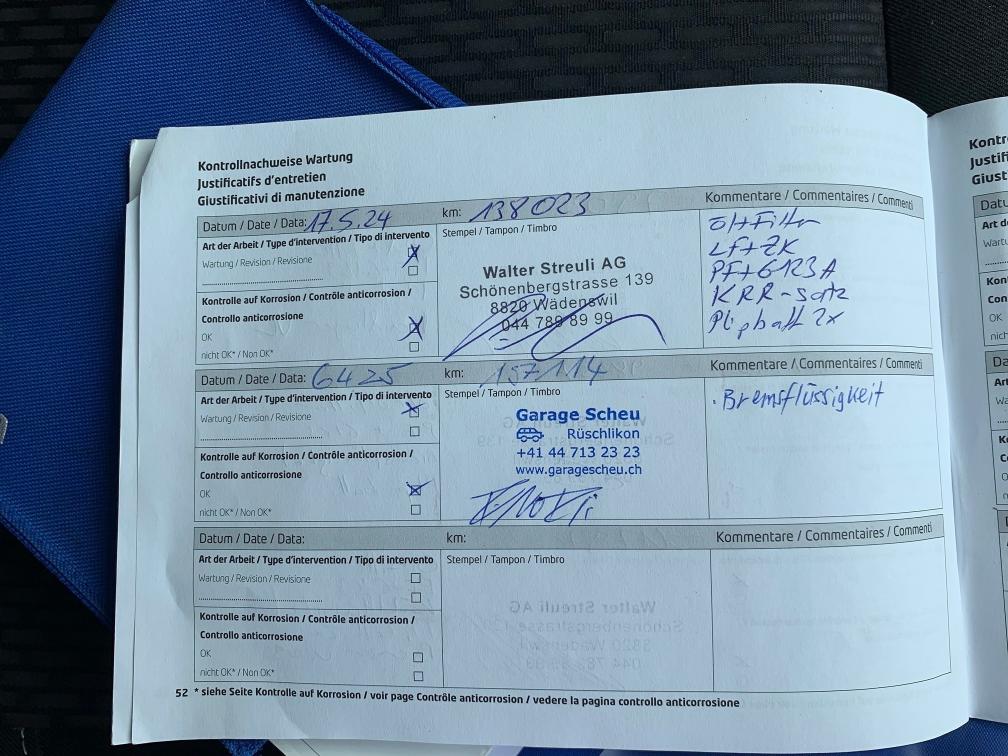 Kontrollnachweise Wartung
Justificatifs d'entretien
Giustificativi di manutenzione
Datum / Date / Data: 17.5.24 km: 138023 Kommentare / Commentaires / Commenti
Art der Arbeit / Type d'intervention / Tipo di intervento
Stempel / Tampon / Timbro
Wartung / Revision / Revisione
Kontrolle auf Korrosion / Contrôle anticorrosion /
Controllo anticorrosione
OK
nicht OK* / Non OK*
Walter Streuli AG
Schönenbergstrasse 139
8820 Wädenswil
044 789 89 99
Öl+Filter
LF+ZK
PF+G123A
KRR-satz
2x
Datum / Date / Data: 6425 km: 157114 Kommentare / Commentaires / Commenti
Art der Arbeit / Type d'intervention / Tipo di intervento
Stempel / Tampon / Timbro
Wartung / Revision / Revisione
Kontrolle auf Korrosion / Contrôle anticorrosion /
Controllo anticorrosione
OK
nicht OK* / Non OK*
Garage Scheu
Rüschlikon
+41 44 713 23 23
www.garagescheu.ch
. Bremsflüssigkeit
Datum / Date / Data: km: Kommentare / Commentaires / Commenti
Art der Arbeit / Type d'intervention / Tipo di intervento
Stempel / Tampon / Timbro
Wartung / Revision / Revisione
Kontrolle auf Korrosion / Contrôle anticorrosion /
Controllo anticorrosione
OK
nicht OK* / Non OK*
52 * siehe Seite Kontrolle auf Korrosion / voir page Contrôle anticorrosion / vedere la pagina controllo anticorrosione